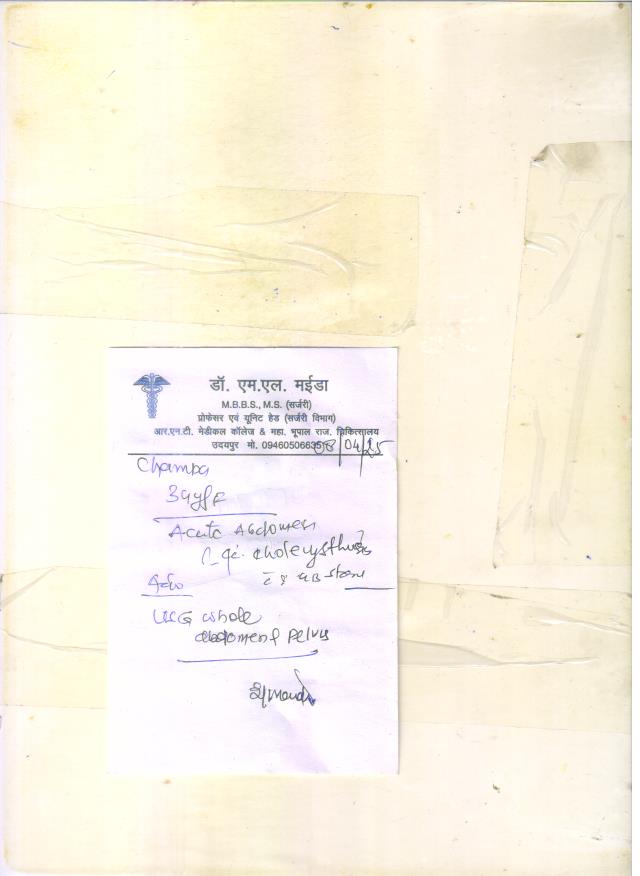 डॉ. एम.एल. मईडा
M.B.B.S., M.S. (सर्जरी)
प्रोफेसर एवं यूनिट हेड (सर्जरी विभाग)
आर.एन.टी. मेडीकल कॉलेज & महा. भूपाल राज. चिकित्सालय
उदयपुर मो. 09460506635
08/04/25
Champa
39y/F
Acute Abdomen
GB stone
Adv
USG whole
abdomen & Pelvis